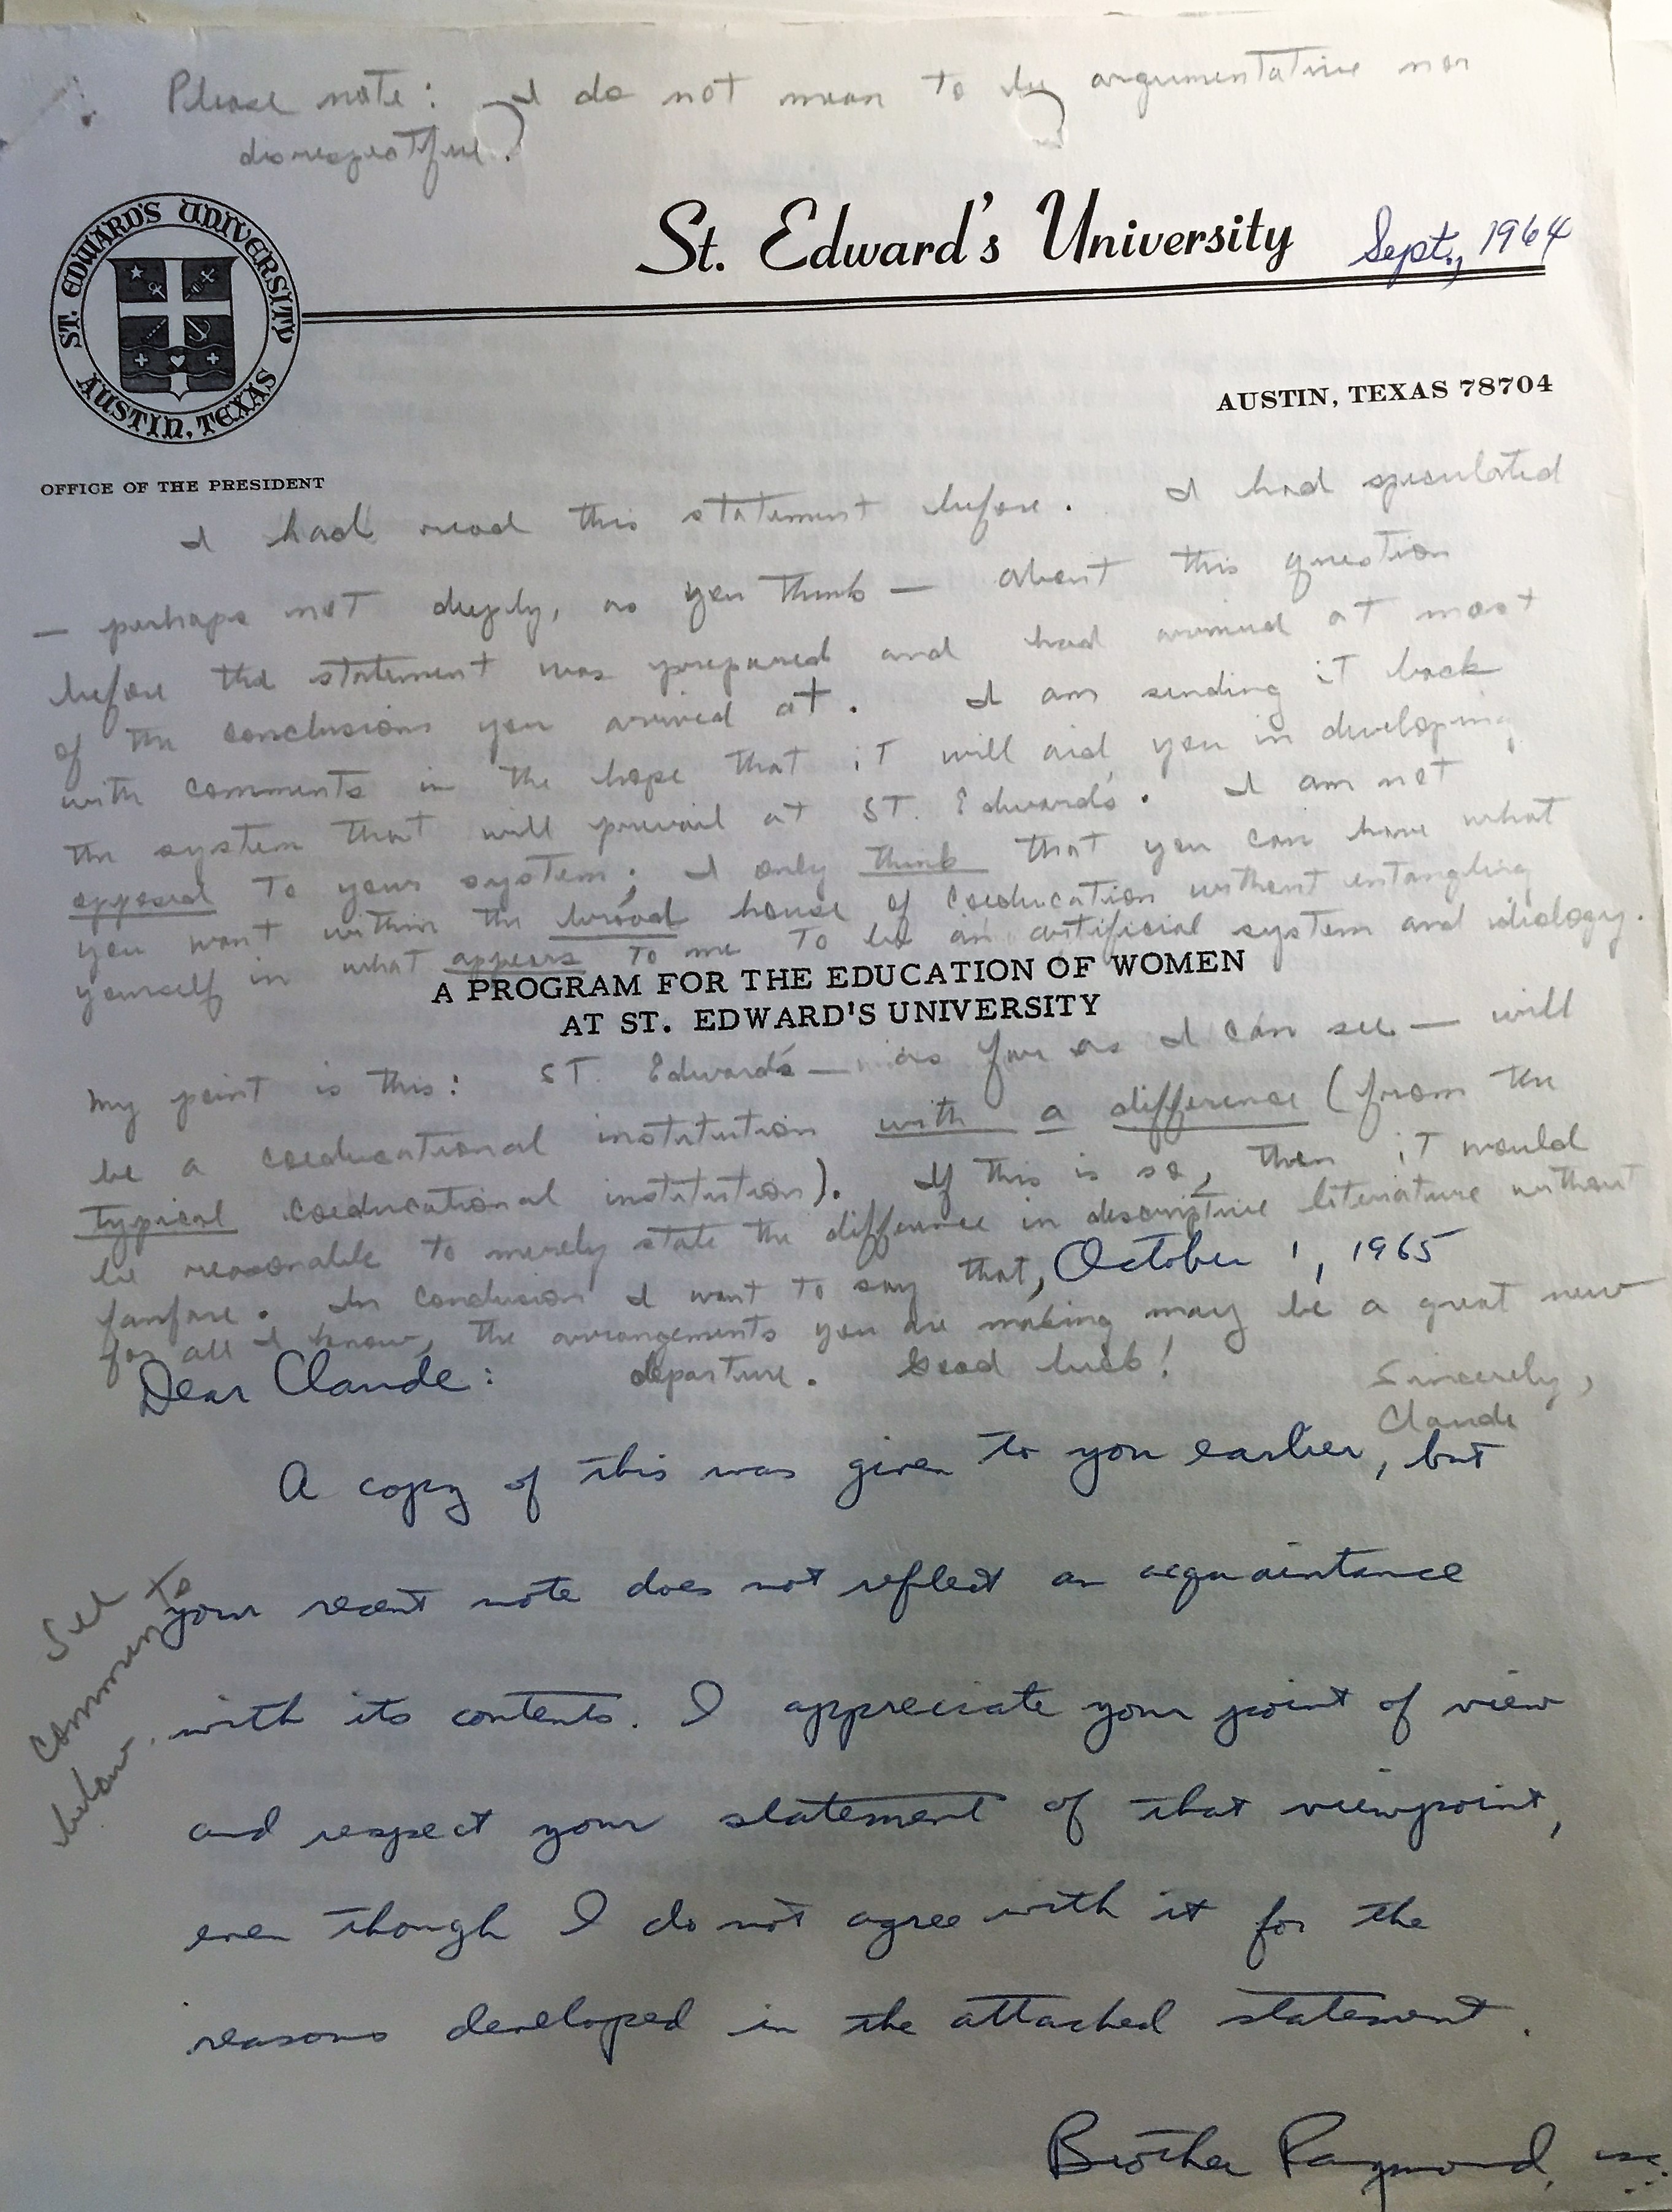 Please note: I do not mean to be argumentative nor
disrespectful.
St. Edward's University Sept., 1964
ST. EDWARD'S UNIVERSITY
AUSTIN, TEXAS
AUSTIN, TEXAS 78704
OFFICE OF THE PRESIDENT
I had read this statement before. I had speculated
— perhaps not deeply, as you think — about this question
before the statement was prepared and had arrived at most
of the conclusions you arrived at. I am sending it back
with comments in the hope that it will aid you in developing
the system that will prevail at St. Edward's. I am not
opposed to your system; I only think that you can have what
you want within the broad house of coeducation without entangling
yourself in what appears to me to be an artificial system and ideology.
A PROGRAM FOR THE EDUCATION OF WOMEN
AT ST. EDWARD'S UNIVERSITY
My point is this: St. Edward's — as far as I can see — will
be a coeducational institution with a difference (from the
typical coeducational institution). If this is so, then it would
be reasonable to merely state the difference in descriptive literature without
fanfare. In conclusion I want to say that,
for all I know, the arrangements you are making may be a great new
departure. Good luck!
Sincerely,
Claude
October 1, 1965
Dear Claude:
A copy of this was given to you earlier, but
your recent note does not reflect an acquaintance
with its contents. I appreciate your point of view
and respect your statement of that viewpoint,
even though I do not agree with it for the
reasons developed in the attached statement.
Brother Raymond,
See
comment to
below.